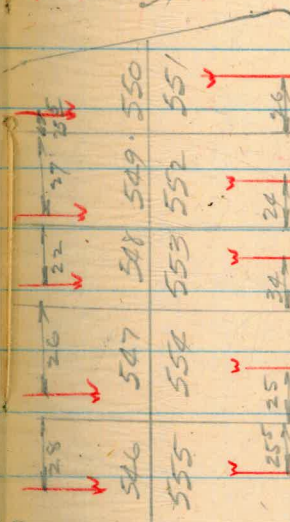 28 26 22 27
546 547 548 549 550
555 554 553 552 551
25⁵ 25 34 24 26